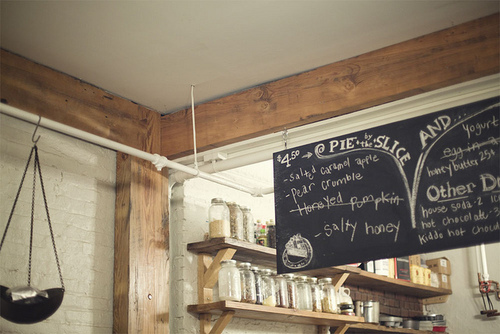 $4.50 → @ PIE by the SLICE
- Salted caramel apple
- Pear crumble
Honeyed Pumpkin
- Salty honey
AND...
Yogurt
egg in a
honey butter 25¢
Other Dr
house soda · 2
hot chocolate
kiddo hot choco